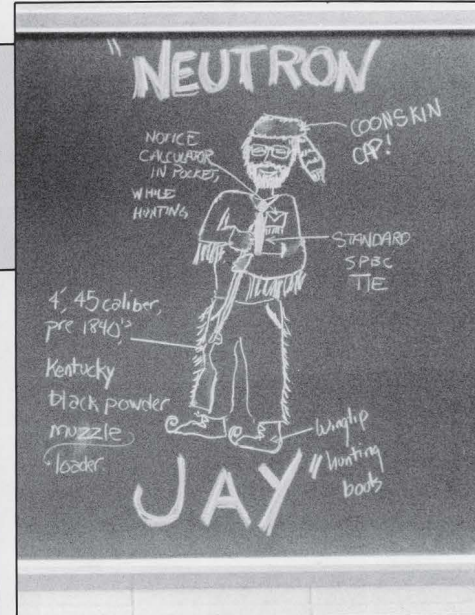 "NEUTRON
COONSKIN
CAP!
NOTICE
CALCULATOR
IN POCKET,
WHILE
HUNTING
STANDARD
SPBC
TIE
4', 45 caliber,
pre 1840's
Kentucky
black powder
muzzle
loader.
Wingtip
hunting
boots
JAY"